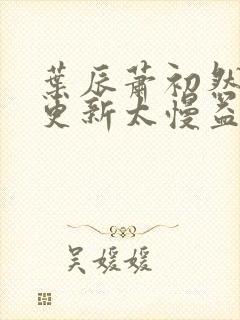 葉辰蕭初然
更新太慢盜
吴媛媛